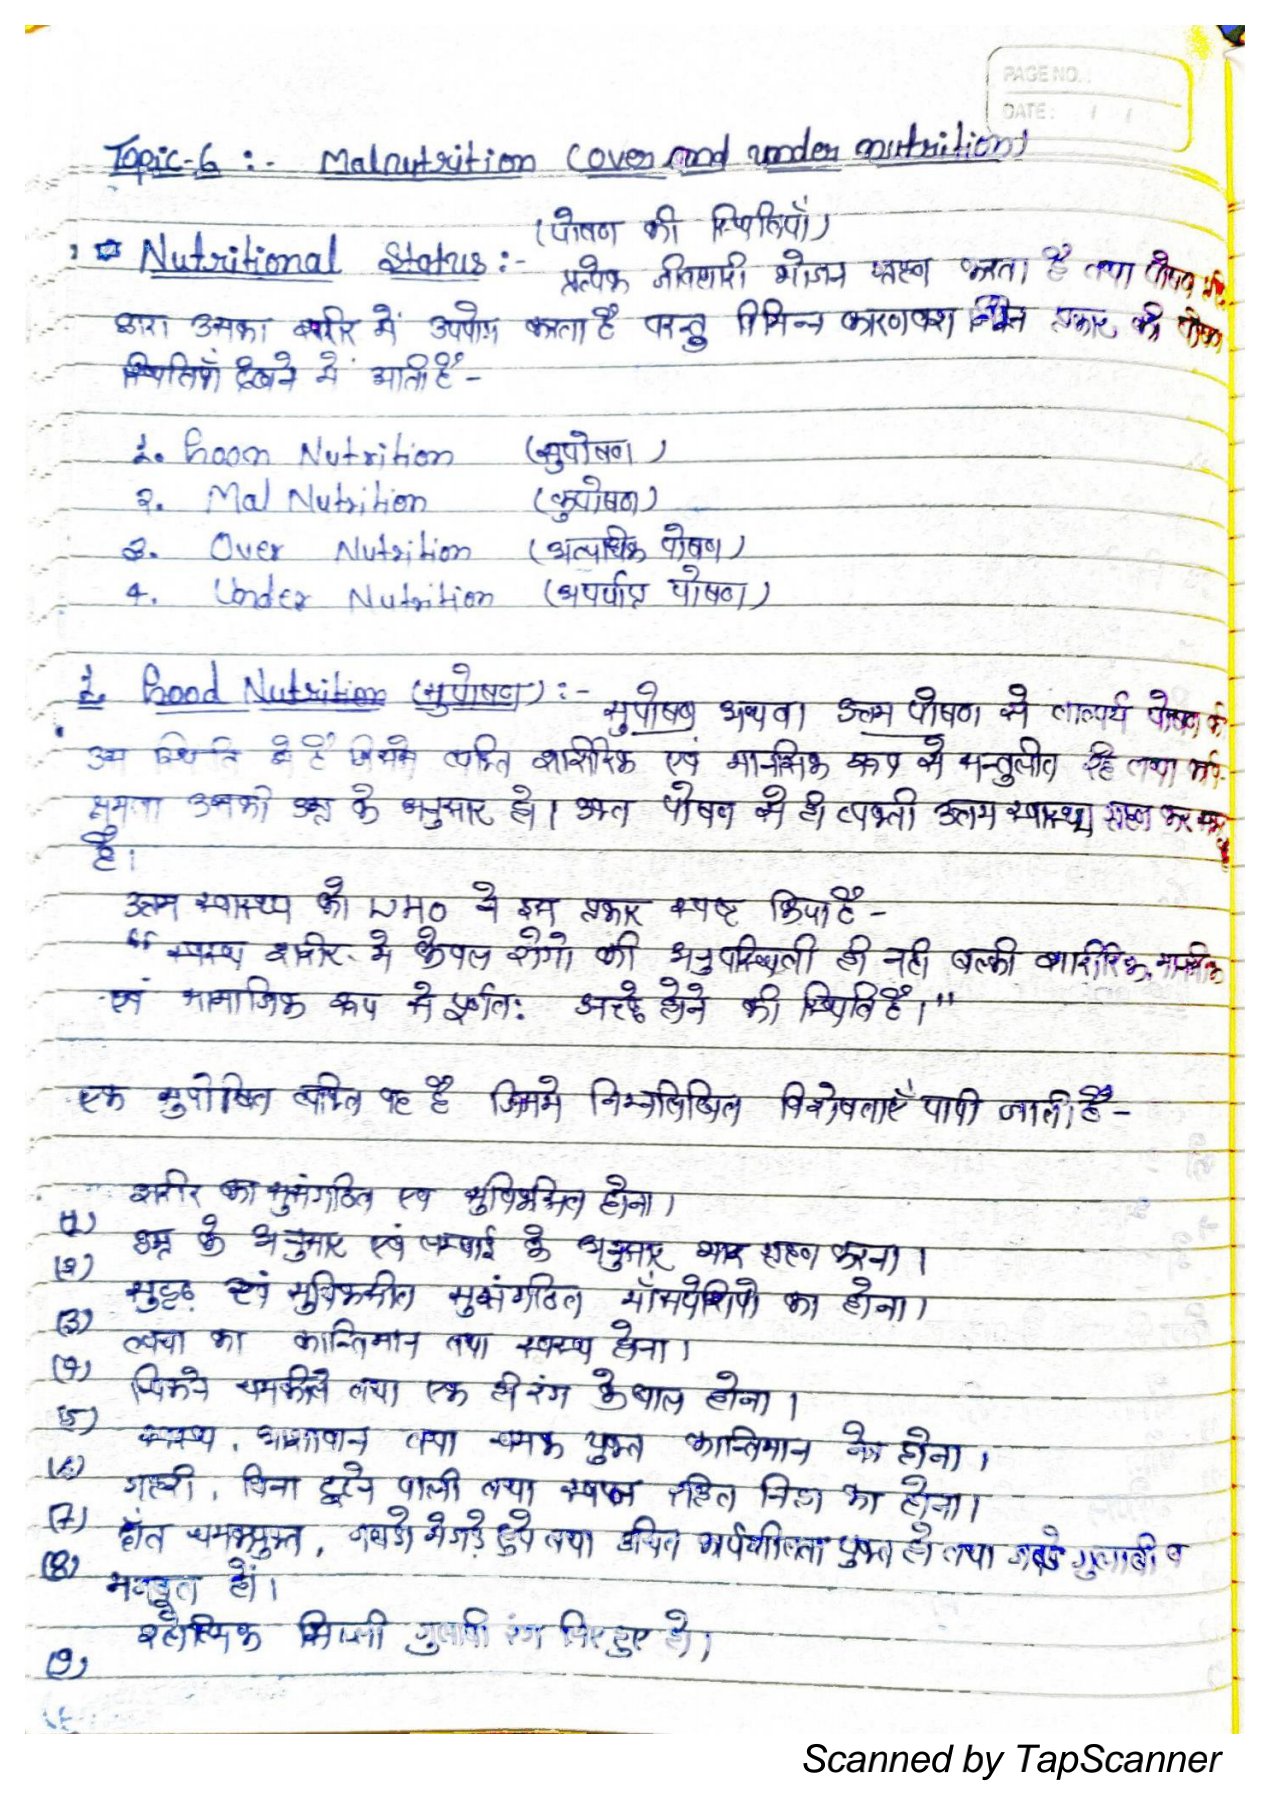 PAGE NO.
DATE: / /
Topic-6 :- Malnutrition (over and under nutrition)
(पोषण की स्थितियाँ)
Nutritional Status :-
प्रत्येक जीवधारी भोजन ग्रहण करता है तथा पोषण
द्वारा उसका शरीर में उपयोग करता है परन्तु विभिन्न कारणवश प्रकार की पोषण
स्थितियाँ देखने में आती हैं -
1. Good Nutrition (सुपोषण)
2. Mal Nutrition (कुपोषण)
3. Over Nutrition (अत्यधिक पोषण)
4. Under Nutrition (अपर्याप्त पोषण)
1. Good Nutrition (सुपोषण) :-
सुपोषण अथवा उत्तम पोषण से तात्पर्य पोषण की
उस स्थिति से है जिसमे व्यक्ति शारीरिक एवं मानसिक रूप से सन्तुलीत रहे तथा कार्य-
क्षमता उसकी उम्र के अनुसार हो। पोषण से ही व्यक्ती उत्तम स्वास्थ्य ग्रहण कर
है।
उत्तम स्वास्थ्य को WHO ने इस प्रकार स्पष्ट किया है -
"स्वस्थ शरीर में केवल रोगो की अनुपस्थिती ही नही बल्की शारीरिक, मानसिक
एवं सामाजिक रूप से पूर्णत: अच्छे होने की स्थिति है।"
एक सुपोषित व्यक्ति वह है जिसमे निम्नलिखित विशेषताएँ पायी जाती है -
शरीर का सुसंगठित एव सुविकसित होना।
(1)
उम्र के अनुसार एवं लम्बाई के अनुसार भार ग्रहण करना।
(2)
सुदृढ़ एवं सुविकसीत सुसंगठित माँसपेशियो का होना।
(3)
त्वचा का कान्तिमान तथा स्वस्थ होना।
(4)
चिकने चमकीले तथा एक ही रंग के बाल होना।
(5)
स्वस्थ, आशावान तथा चमक युक्त कान्तिमान नेत्र होना।
(6)
गहरी, बिना टूटने वाली तथा स्वप्न रहित निद्रा का होना।
(7)
दाँत चमकयुक्त, जबडो मे गड़े हुये तथा उचित युक्त हो तथा जबड़े गुलाबी व
(8)
मजबूत हों।
श्लेष्मिक झिल्ली गुलाबी रंग लिए हुए हो।
(9)
Scanned by TapScanner